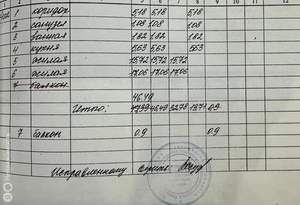 3 4 5 6 7 8 9 10 11 12
1 коридор 5,18 5,18
2 санузел 1,08 1,08 1,08
3 ванная 1,82 1,82 1,82
4 кухня 5,63 5,63 5,63
5 жилая 15,72 15,72 15,72
6 жилая 17,06 17,06 17,06
7 балкон
46,49
Итого: 46,49 32,78 13,71 0,9
7 балкон 0,9 0,9
Исправленному верить